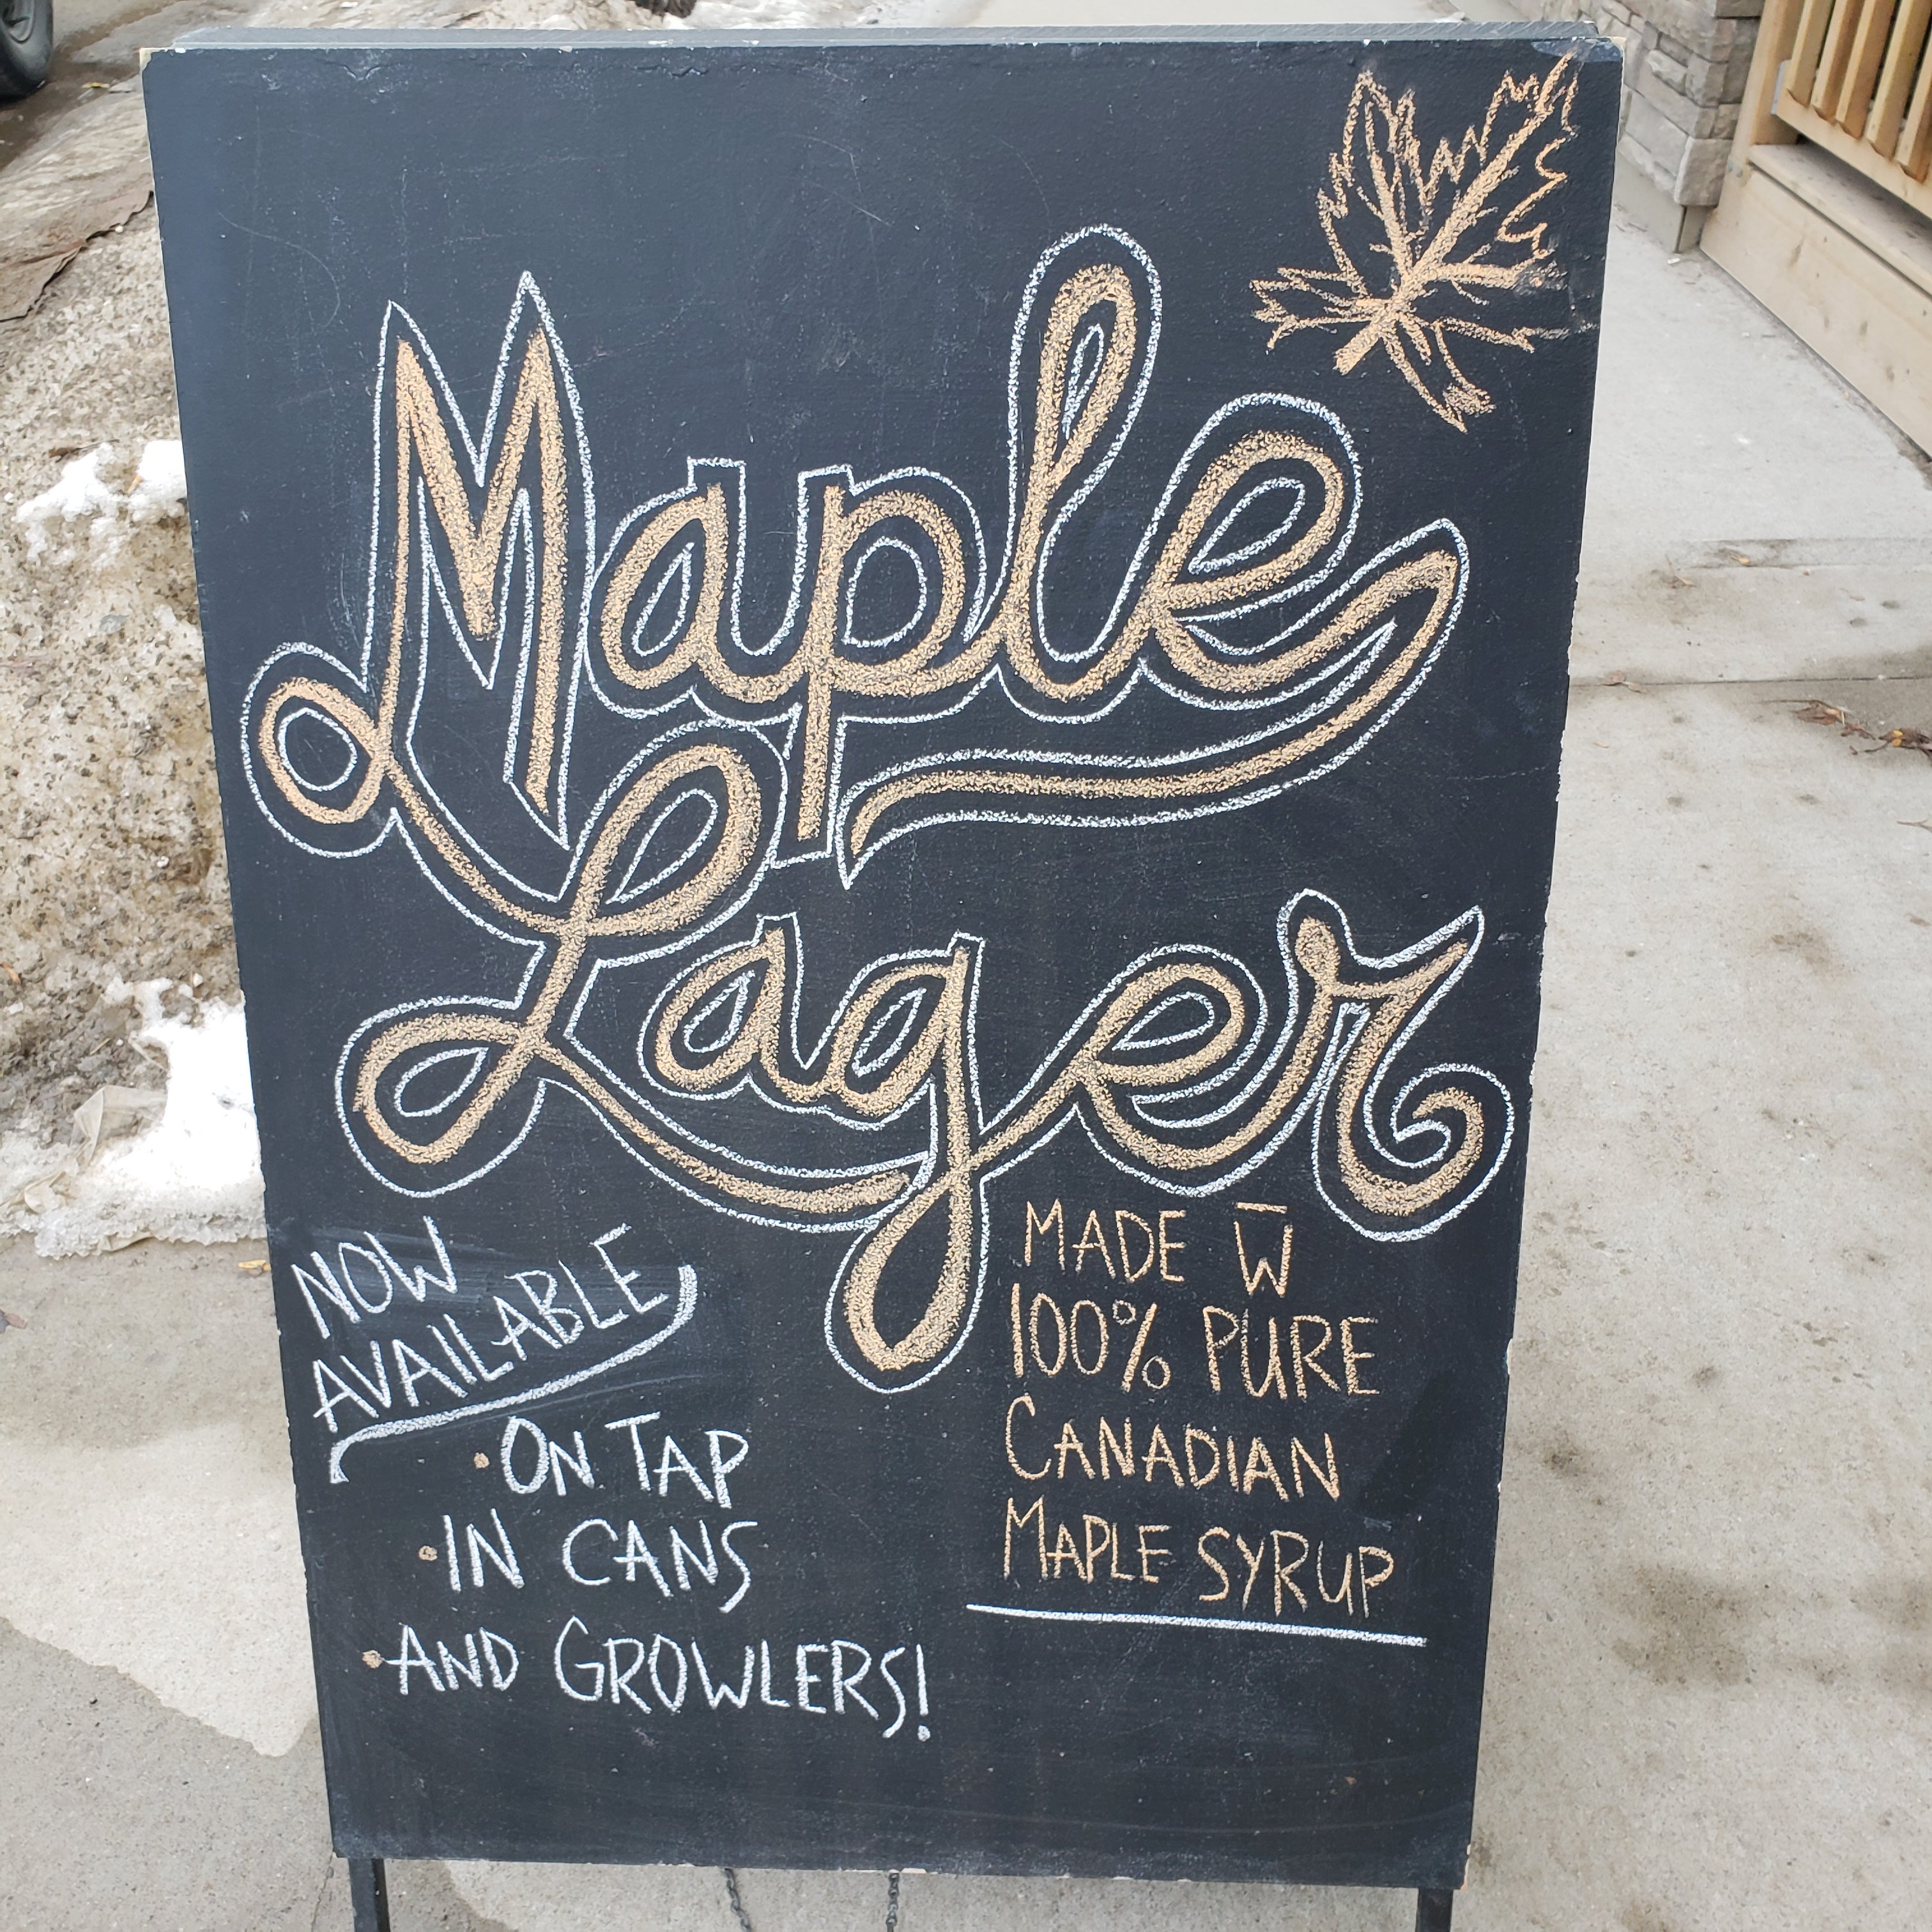 Maple
Lager
NOW
AVAILABLE
• ON TAP
• IN CANS
• AND GROWLERS!
MADE W̄
100% PURE
CANADIAN
MAPLE SYRUP